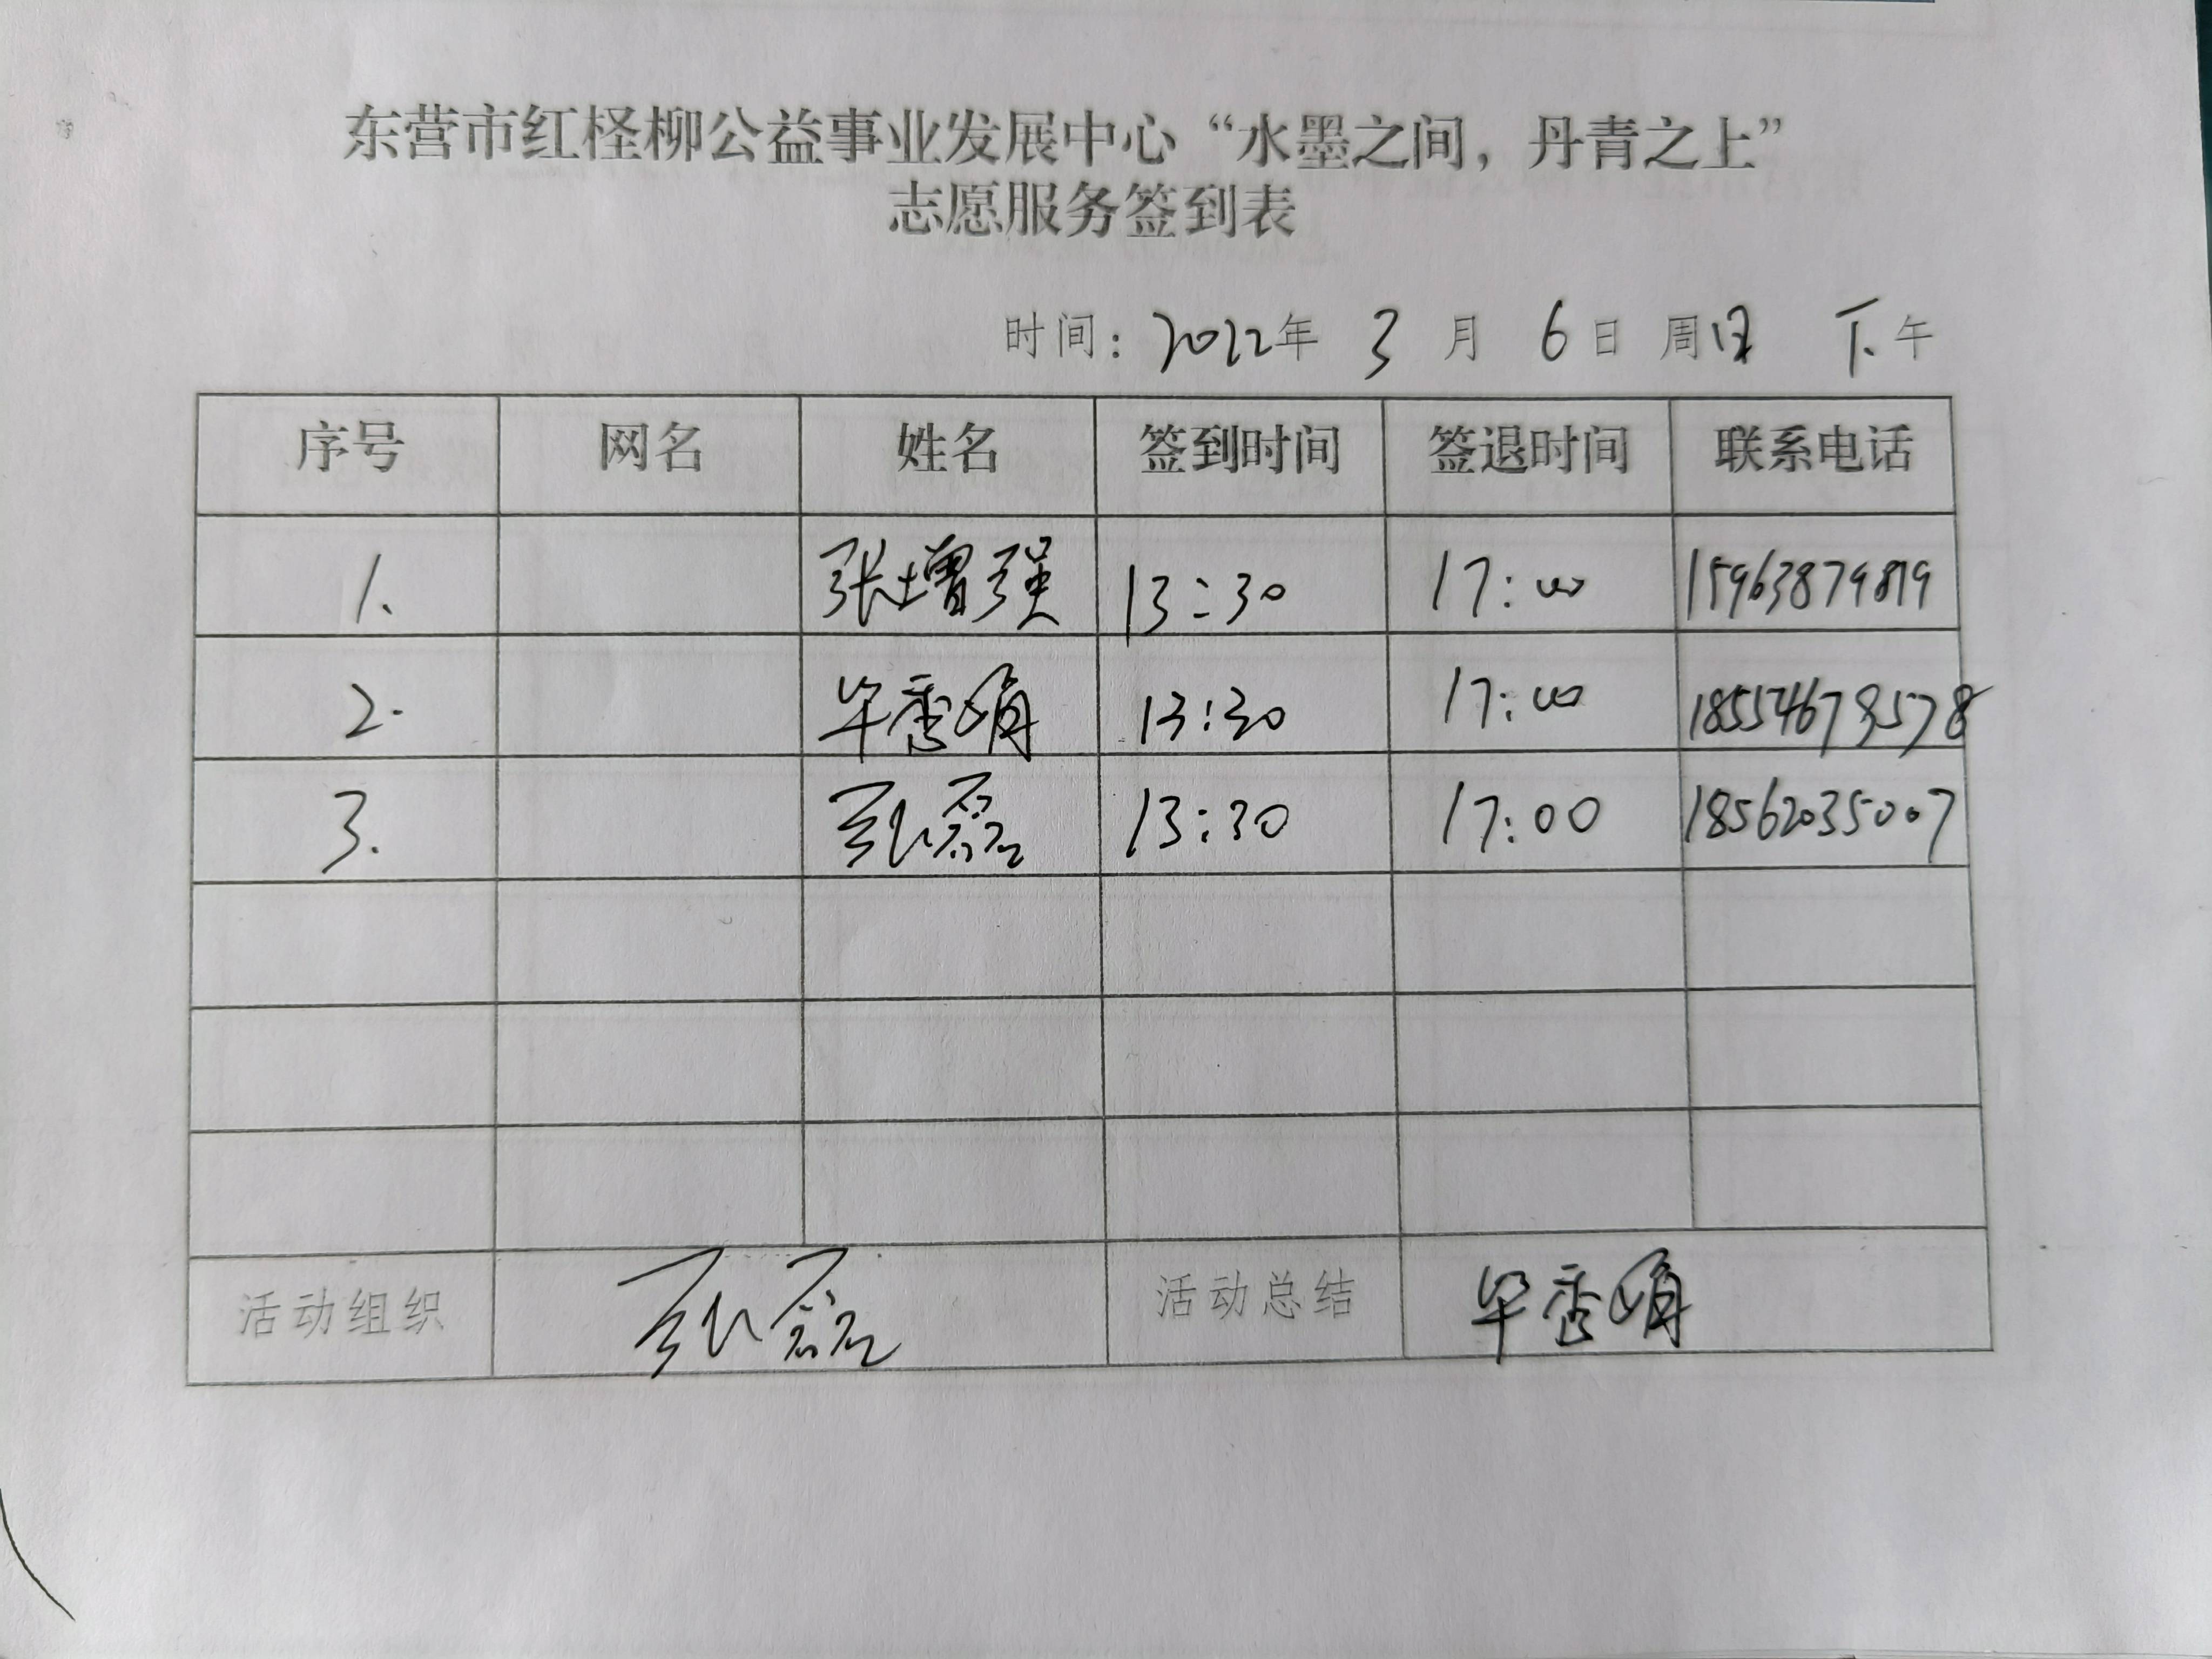 东营市红柽柳公益事业发展中心“水墨之间，丹青之上”
志愿服务签到表
时间：2022年 3 月 6 日 周日 下午
序号 网名 姓名 签到时间 签退时间 联系电话
1. 张增强 13:30 17:00 15963879819
2. 毕秀娟 13:30 17:00 18554678578
3. 张磊 13:30 17:00 18562035007
活动组织 张磊 活动总结 毕秀娟